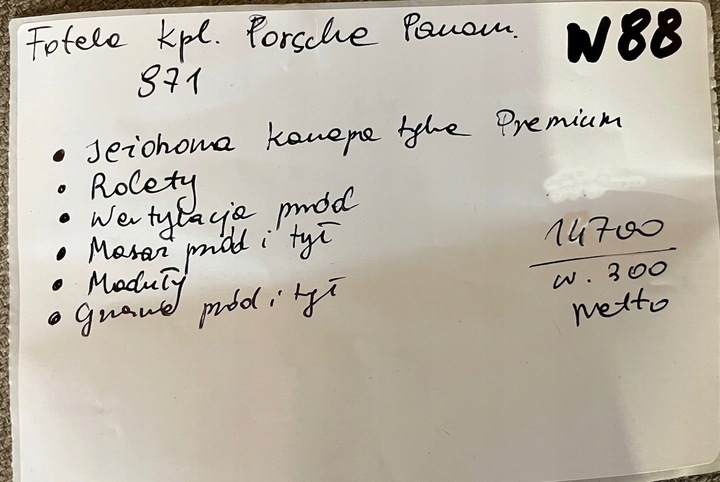 Fotele kpl. Porsche Panam.
W88
971
• Dzielona kanapa tylna Premium
• Rolety
• Wentylacja przód
• Masaż przód i tył
• Moduły
• Grzanie przód i tył
14700
w. 300
netto